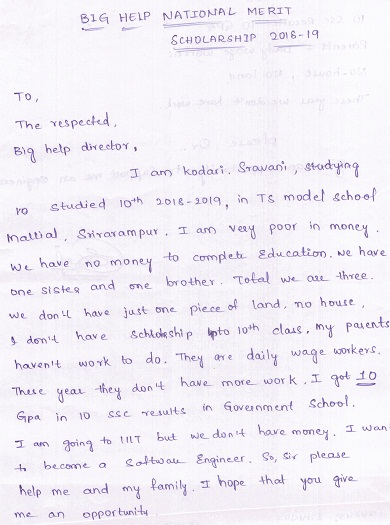 BIG HELP NATIONAL MERIT
SCHOLARSHIP 2018-19
To,
The respected,
Big help director,
I am kodari. Sravani, studying
studied 10th 2018-2019, in TS model school
Mallial, Srirarampur. I am very poor in money.
We have no money to complete Education. we have
one sister and one brother. Total we are three.
we don't have just one piece of land, no house,
I don't have Scholarship upto 10th class, my parents
haven't work to do. They are daily wage workers.
These year they don't have more work. I got 10
Gpa in 10 ssc results in Government School.
I am going to IIIT but we don't have money. I wan
to become a Software Engineer. So, sir please
help me and my family. I hope that you give
me an opportunity